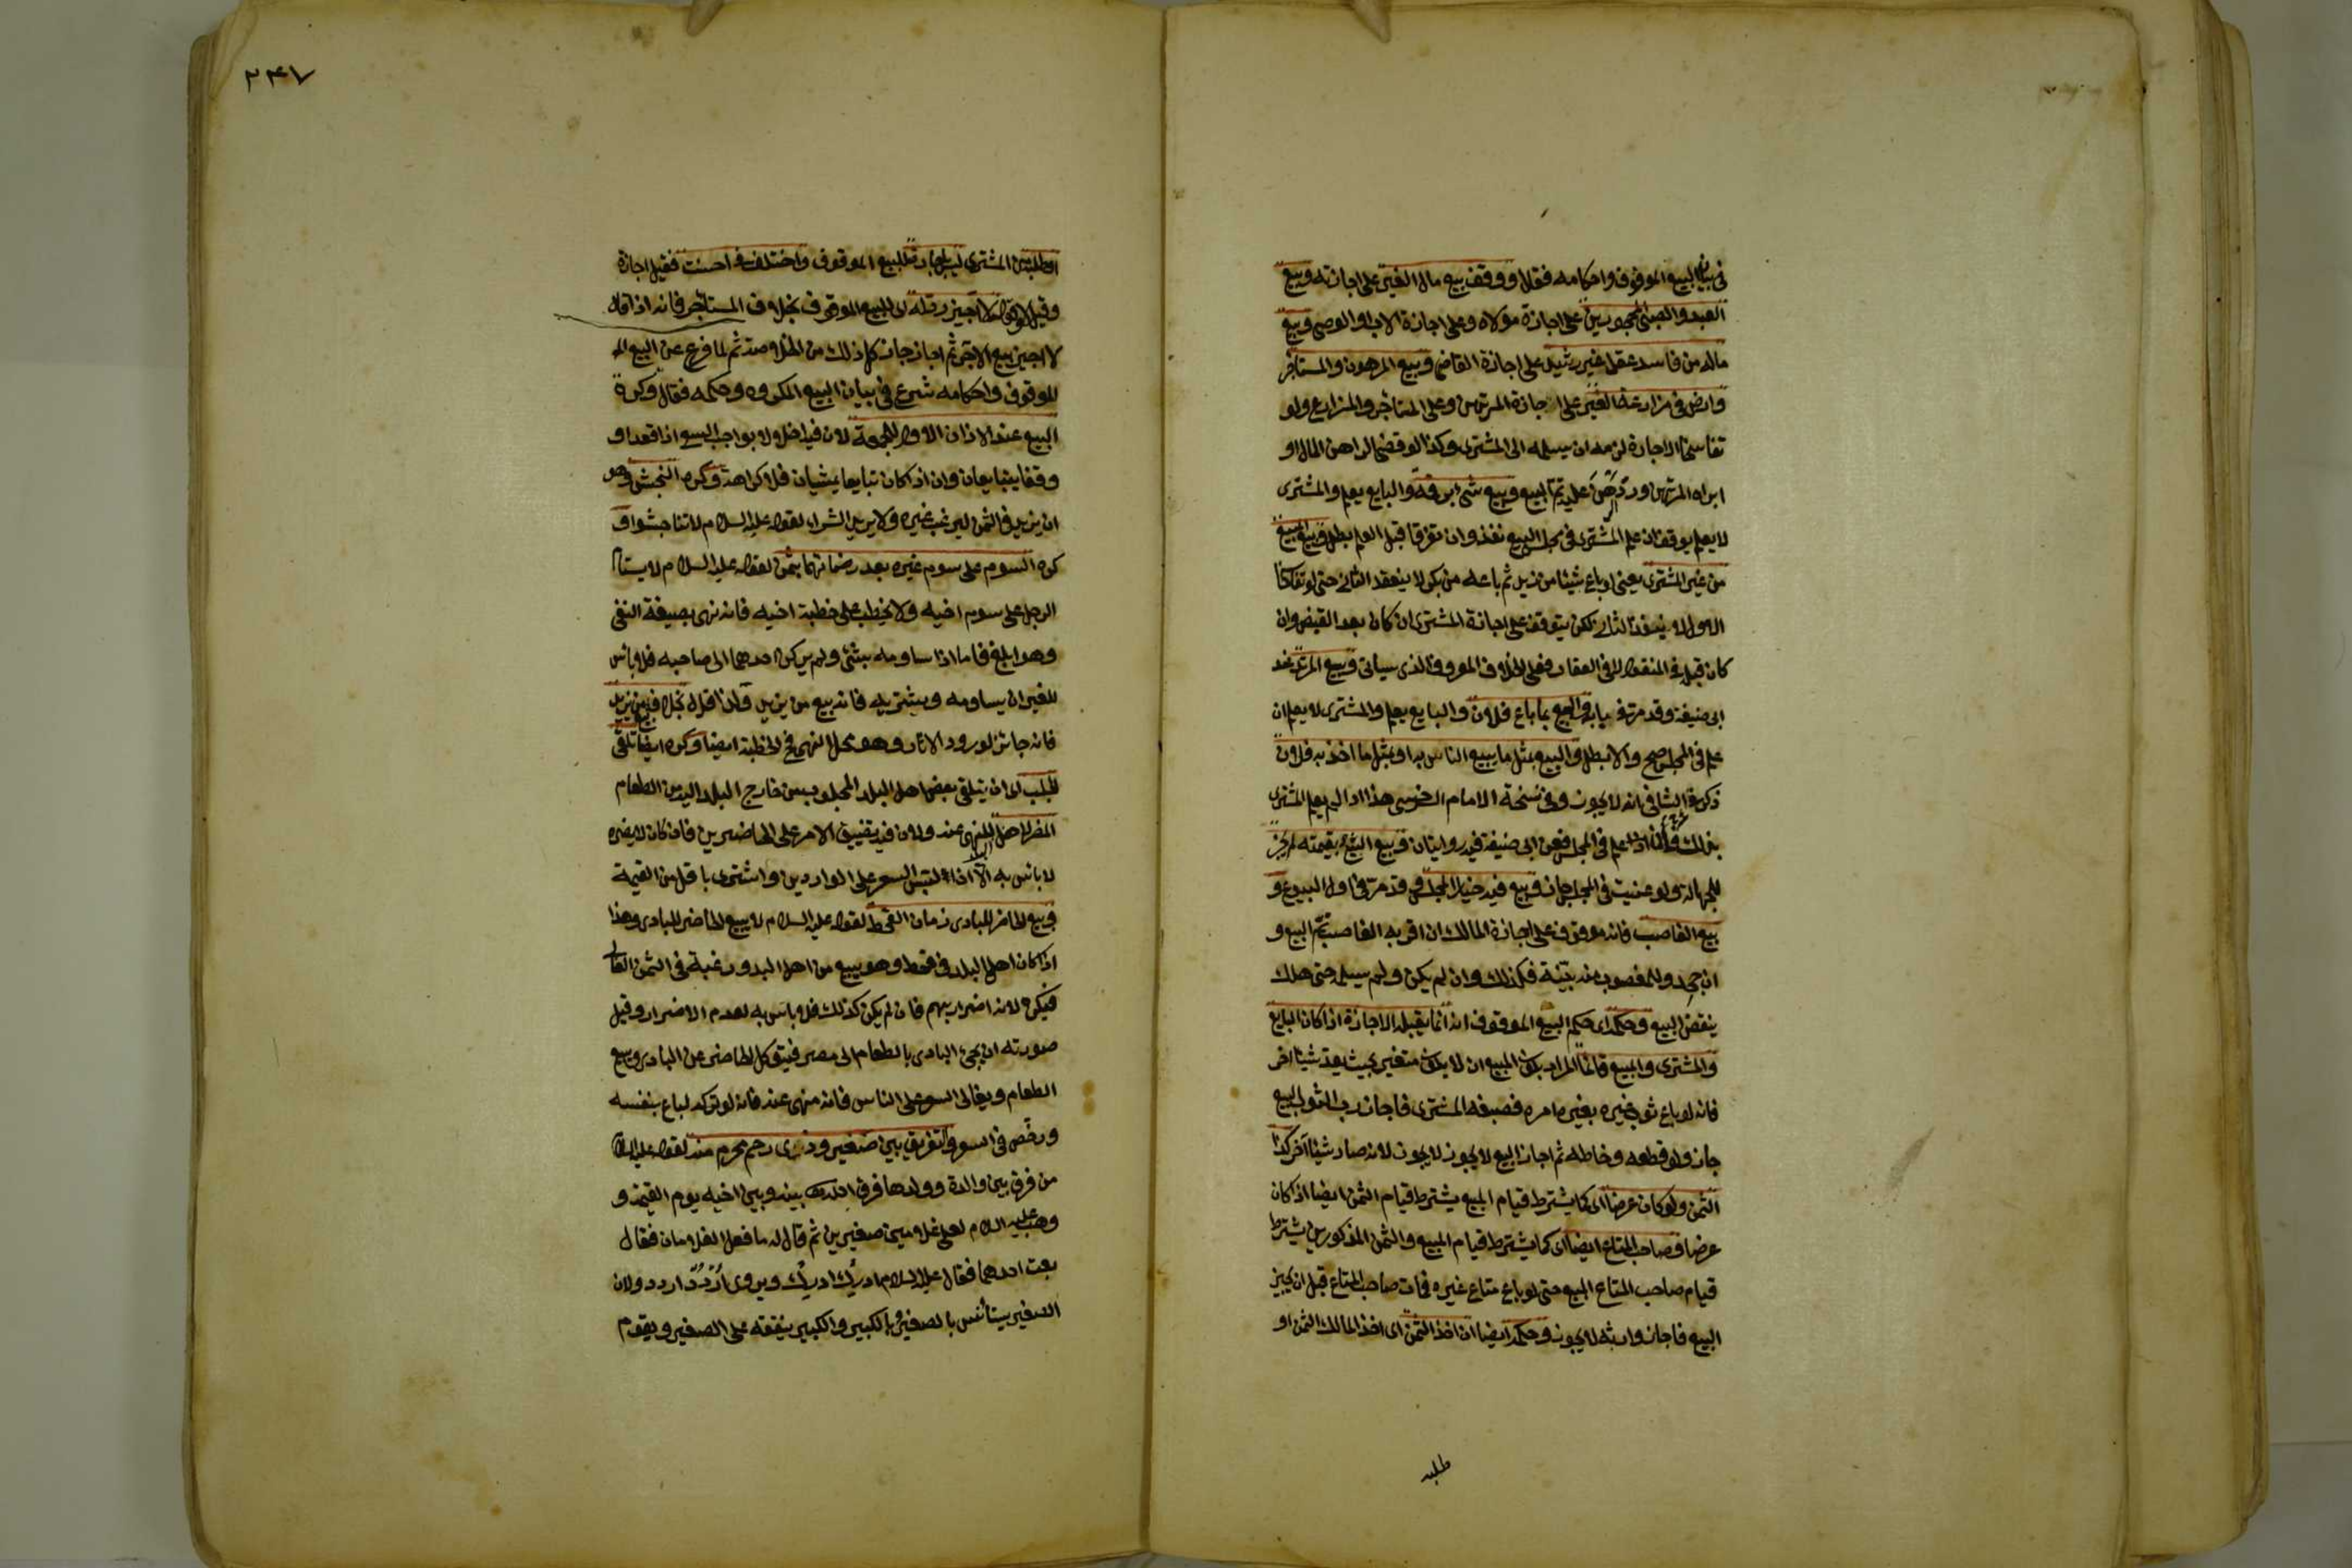 في بيان البيع الموقوف واحكامه فقال ووقف بيع مال الغير على اجازته وبيع
العبد والصبي المحجورين على اجازة مولاه وعلى اجازة الاب او الوصي وبيع
ماله من فاسد عقل غير رشيد على اجازة القاضي وبيع المرهون والمستأجر
وارض في مزارعة الغير على اجازة المرتهن وعلى المستأجر والمزارع ولو
تفاسخا الاجارة لزمه ان يسلمه الى المشتري وكذا لو قضى الراهن المال او
ابراه المرتهن ورد الرهن عليه تم البيع وبيع شئ برقمه والبايع يعلم والمشتري
لا يعلم يوقف ان علم المشتري في مجلس البيع نفذ وان تفرقا قبل العلم بطل وبيع المبيع
من غير المشتري يعني لو باع شيئا من زيد ثم باعه من بكر لا ينعقد الثاني حتى لو تفاسخا
الاول لا ينفذ الثاني لكن يتوقف على اجازة المشتري ان كان بعد القبض وان
كان قبله في المنقول لا وفي العقار فعلى الخلاف المعروف الذي سيأتي وبيع المرتد عند
ابي حنيفة وقد مر في بابه والبيع بما باع فلان والبايع يعلم والمشتري لا يعلم ان
علم في المجلس صح والا بطل والبيع بمثل ما يبيع الناس به او بمثل ما اخذ به فلان
ذكر في الشافي انه لا يجوز وفي نسخة الامام السرخسي هذا اذا لم يعلم المشتري
بذلك وان علم في المجلس فعن ابي حنيفة فيه روايتان وبيع الشئ بقيمته لم يجز
للجهالة ولو عينت في المجلس جاز وبيع فيه خيار المجلس وقد مر في اول البيوع و
بيع الغاصب فانه موقوف على اجازة المالك ان اقر به الغاصب تم البيع و
ان جحد وللمغصوب منه بينة فكذلك وان لم يكن ولم يسلمه حتى هلك
ينقض البيع وحكمه اي حكم البيع الموقوف انه انما يقبل الاجازة اذا كان البايع
والمشتري والمبيع قائما المراد بكون المبيع ان لا يكون متغير بحيث يعد شيئا اخر
فانه لو باع ثوب غيره بغير امره فصبغه المشتري فاجاز رب الثوب البيع
جاز ولو قطعه وخاطه ثم اجاز البيع لا يجوز لا يجوز لانه صار شيئا آخر كذا
الثمن ولو كان عرضا اي كما يشترط قيام المبيع يشترط قيام الثمن ايضا اذا كان
عرضا وصاحب المتاع ايضا اي كما يشترط قيام المبيع والثمن المذكورين يشترط
قيام صاحب المتاع المبيع حتى لو باع متاع غيره فمات صاحب المتاع قبل ان يجيز
البيع فاجاز وارثه لا يجوز وحكمه ايضا ان اخذ الثمن اي اخذ المالك الثمن او
طلبه
٢٤٧
او طلبه من المشتري ليس اجازة للبيع الموقوف واختلف في احسنت فقيل اجازة
وقيل لا وقوله لا اجيز رد له اي للبيع الموقوف بخلاف المستأجر فانه اذا قال
لا اجيز بيع الاجر ثم اجاز جاز كل ذلك من الخلاصة ثم لما فرغ عن البيع الم
الموقوف واحكامه شرع في بيان البيع المكروه وحكمه فقال وكره
البيع عند الاذان الاول للجمعة لان فيه اخلالا بواجب السعي اذا قعدا و
وقفا يتبايعان وان اذا كان تبايعا يمشيان فلا كراهة وكره النجش وهو
ان يزيد في الثمن ليرغب غيره ولا يريد الشراء لقوله عليه السلام لا تناجشوا و
كره السوم على سوم غيره بعد رضائهما بثمن لقوله عليه السلام لا يستام
الرجل على سوم اخيه ولا يخطب على خطبة اخيه فانه نهى بصيغة النفي
وهو ابلغ فاما اذا ساومه بشئ ولم يركن احدهما الى صاحبه فلا بأس
للغير ان يساومه ويشتريه فانه بيع من يزيد ولذا قال بخلاف بيع من يزيد
فانه جائز لورود الاثار وهو محل النهي في الخطبة ايضا وكره ايضا تلقي
الجلب اي ان يتلقى بعض اهل البلد المجلوب من خارج البلد اليه من الطعام
المضر لاهل البلد للنهي عنه ولان فيه تضييق الامر على الحاضرين فان كان لا يضره
لا بأس به الا اذا لبس السعر على الواردين واشترى باقل من القيمة
وبيع الحاضر للبادي زمان القحط لقوله عليه السلام لا يبيع الحاضر للبادي وهذا
اذا كان اهل البلد في قحط وهو يبيع من اهل البدو رغبة في الثمن الغالي
فيكره لانه اضرار بهم فان لم يكن كذلك فلا بأس به لعدم الاضرار وقيل
صورته ان يجئ البادي بالطعام الى مصر فيتوكل الحاضر عن البادي ويبيع
الطعام ويغالى السعر على الناس فانه منهى عنه فانه لو تركه لباع بنفسه
ورخص في السعر والتفريق بين صغير وذي رحم محرم منه لقوله عليه السلام
من فرق بين والدة وولدها فرق الله بينه وبين احبته يوم القيمة و
وهب عليه السلام لعلي غلامين صغيرين ثم قال له ما فعل الغلامان فقال
بعت احدهما فقال عليه السلام ادرك ادرك ويروى اردد اردد ولان
الصغير يستأنس بالصغير وبالكبير والكبير ينفقه على الصغير ويقوم